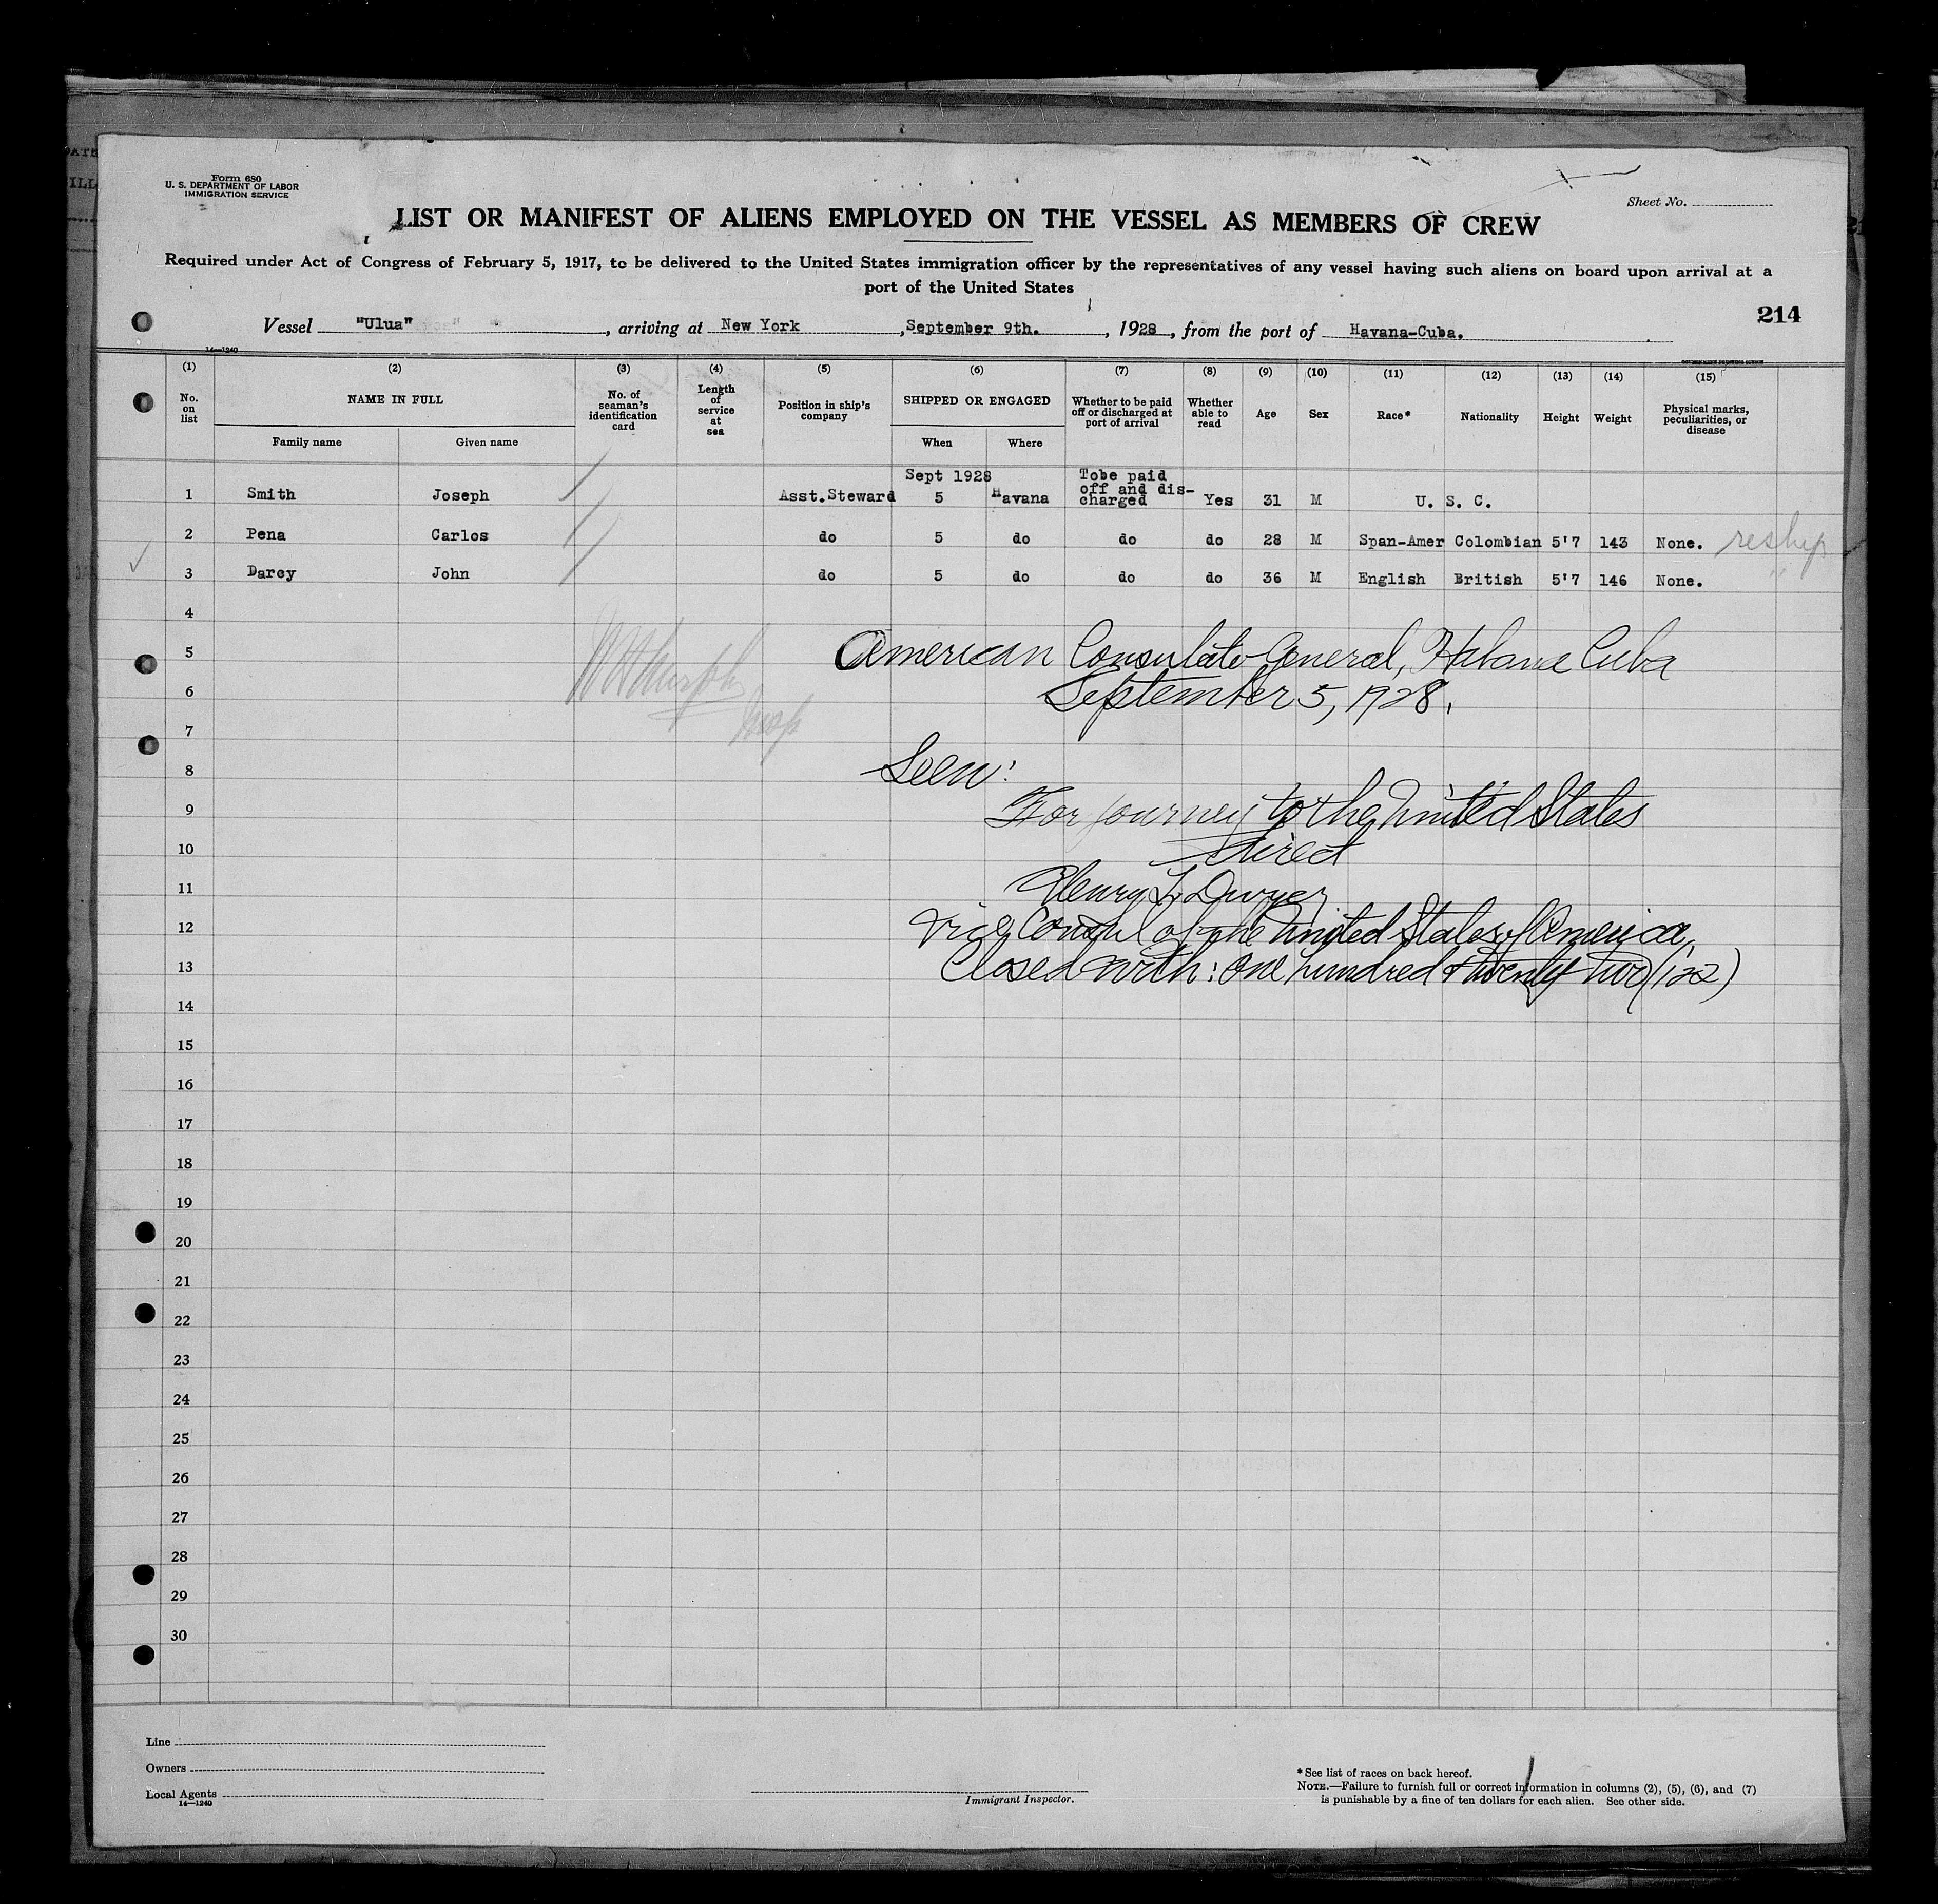 Form 680
U. S. DEPARTMENT OF LABOR
IMMIGRATION SERVICE
Sheet No.
LIST OR MANIFEST OF ALIENS EMPLOYED ON THE VESSEL AS MEMBERS OF CREW
Required under Act of Congress of February 5, 1917, to be delivered to the United States immigration officer by the representatives of any vessel having such aliens on board upon arrival at a
port of the United States
214
Vessel "Ulua", arriving at New York, September 9th., 1928, from the port of Havana-Cuba.
14—1240
GOVERNMENT PRINTING OFFICE
(1) (2) (3) (4) (5) (6) (7) (8) (9) (10) (11) (12) (13) (14) (15)
No. on list NAME IN FULL No. of seaman's identification card Length of service at sea Position in ship's company SHIPPED OR ENGAGED Whether to be paid off or discharged at port of arrival Whether able to read Age Sex Race* Nationality Height Weight Physical marks, peculiarities, or disease
Family name Given name When Where
1 Smith Joseph Asst.Steward Sept 1928 5 Havana Tobe paid off and discharged Yes 31 M U. S. C.
2 Pena Carlos do 5 do do do 28 M Span-Amer Colombian 5'7 143 None. reship
3 Darcy John do 5 do do do 36 M English British 5'7 146 None. "
4
5 American Consulate General, Habana Cuba
6 September 5, 1928.
7
8 Seen:
9 For journey to the United States
10 direct
11 Henry L. Dwyer
12 Vice Consul of the United States of America,
13 Closed with: One hundred & twenty two (122)
14
15
16
17
18
19
20
21
22
23
24
25
26
27
28
29
30
Line
Owners
Local Agents
14—1240
Immigrant Inspector.
* See list of races on back hereof.
NOTE.—Failure to furnish full or correct information in columns (2), (5), (6), and (7)
is punishable by a fine of ten dollars for each alien. See other side.